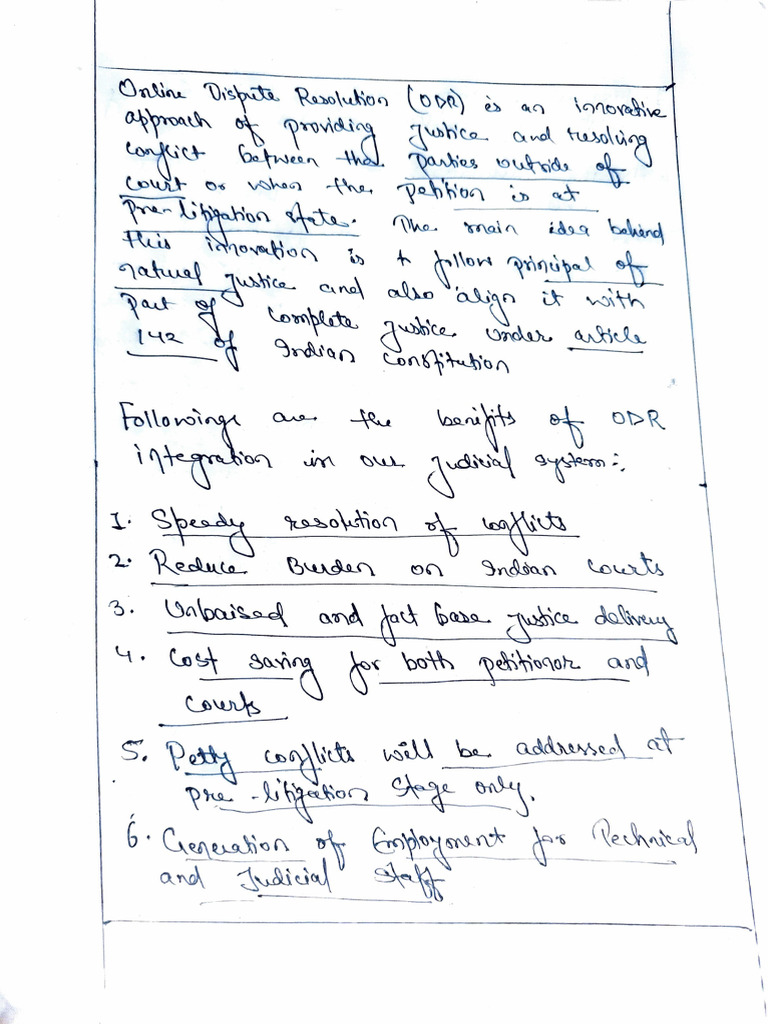 Online Dispute Resolution (ODR) is an innovative
approach of providing justice and resolving
conflict between the parties outside of
court or when the petition is at
pre-litigation state. The main idea behind
this innovation is to follow principal of
natural justice and also align it with
part of complete justice under article
142 of Indian constitution
Followings are the benifits of ODR
integration in our judicial system:
1. Speedy resolution of conflicts
2. Reduce Burden on Indian courts
3. Unbaised and fact base justice delivery
4. Cost saving for both petitionor and
courts
5. Petty conflicts will be addressed at
pre-litigation stage only.
6. Generation of Employment for Technical
and Judicial staff